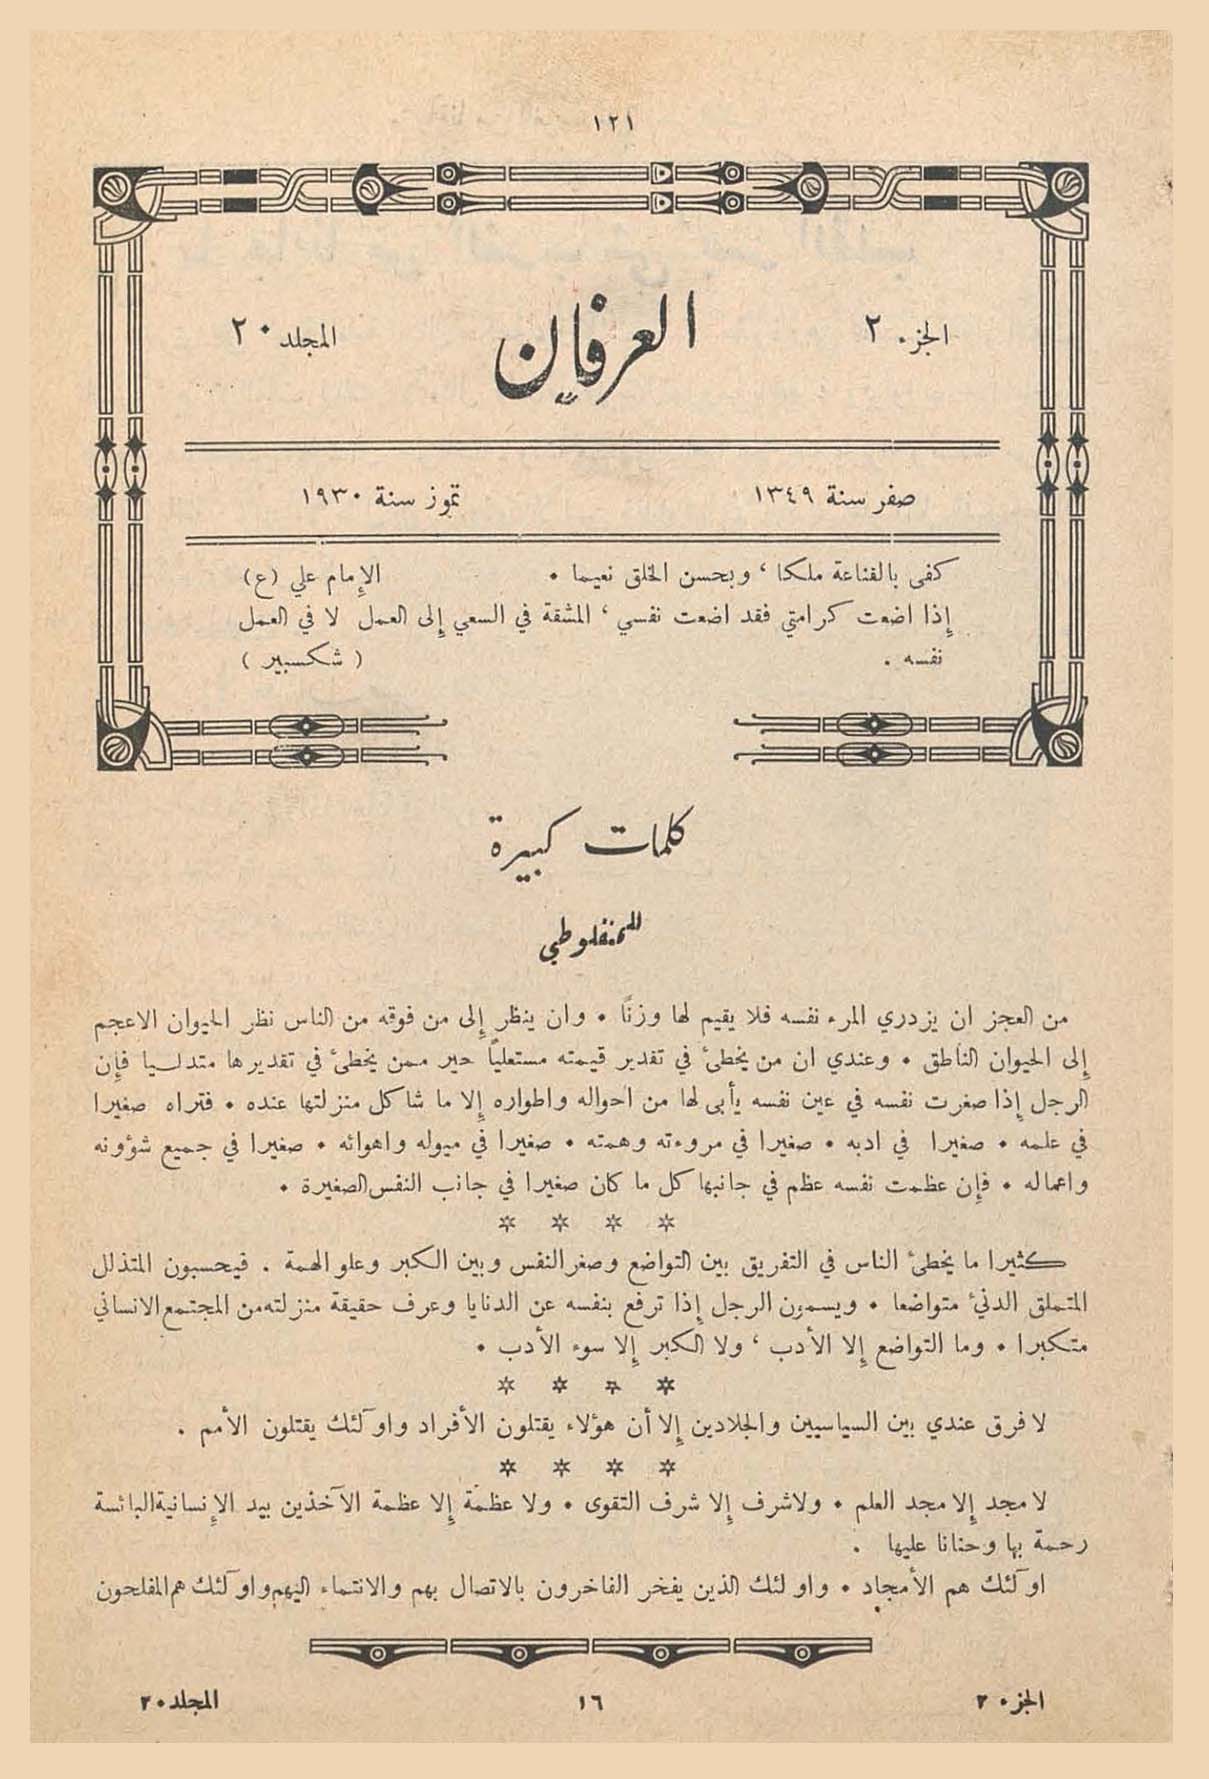 ١٢١
الجزء ٢
العرفان
المجلد ٢٠
صفر سنة ١٣٤٩
تموز سنة ١٩٣٠
كفى بالقناعة ملكا ، وبحسن الخلق نعيما • الإمام علي (ع)
إذا اضعت كرامتي فقد اضعت نفسي ، المشقة في السعي إلى العمل لا في العمل
نفسه . ( شكسبير )
كلمات كبيرة
للمنفلوطي
من العجز ان يزدري المرء نفسه فلا يقيم لها وزنًا • وان ينظر إلى من فوقه من الناس نظر الحيوان الاعجم
إلى الحيوان الناطق • وعندي ان من يخطئ في تقدير قيمته مستعليًا خير ممن يخطئ في تقديرها متدليا فإن
الرجل إذا صغرت نفسه في عين نفسه يأبى لها من احواله واطواره إلا ما شاكل منزلتها عنده • فتراه صغيرا
في علمه • صغيرا في ادبه • صغيرا في مروءته وهمته • صغيرا في ميوله واهوائه • صغيرا في جميع شؤونه
واعماله • فإن عظمت نفسه عظم في جانبها كل ما كان صغيرا في جانب النفس الصغيرة •
* * * *
كثيرا ما يخطئ الناس في التفريق بين التواضع وصغر النفس وبين الكبر وعلو الهمة . فيحسبون المتذلل
المتملق الدنيء متواضعا • ويسمون الرجل إذا ترفع بنفسه عن الدنايا وعرف حقيقة منزلته من المجتمع الانساني
متكبرا • وما التواضع إلا الأدب ، ولا الكبر إلا سوء الأدب •
* * * *
لا فرق عندي بين السياسيين والجلادين إلا أن هؤلاء يقتلون الأفراد واولئك يقتلون الأمم .
* * * *
لا مجد إلا مجد العلم • ولا شرف إلا شرف التقوى • ولا عظمة إلا عظمة الآخذين بيد الإنسانية البائسة
رحمة بها وحنانا عليها .
اولئك هم الأمجاد • واولئك الذين يفخر الفاخرون بالاتصال بهم والانتماء اليهم واولئك هم المفلحون
الجزء ٢
١٦
المجلد ٢٠